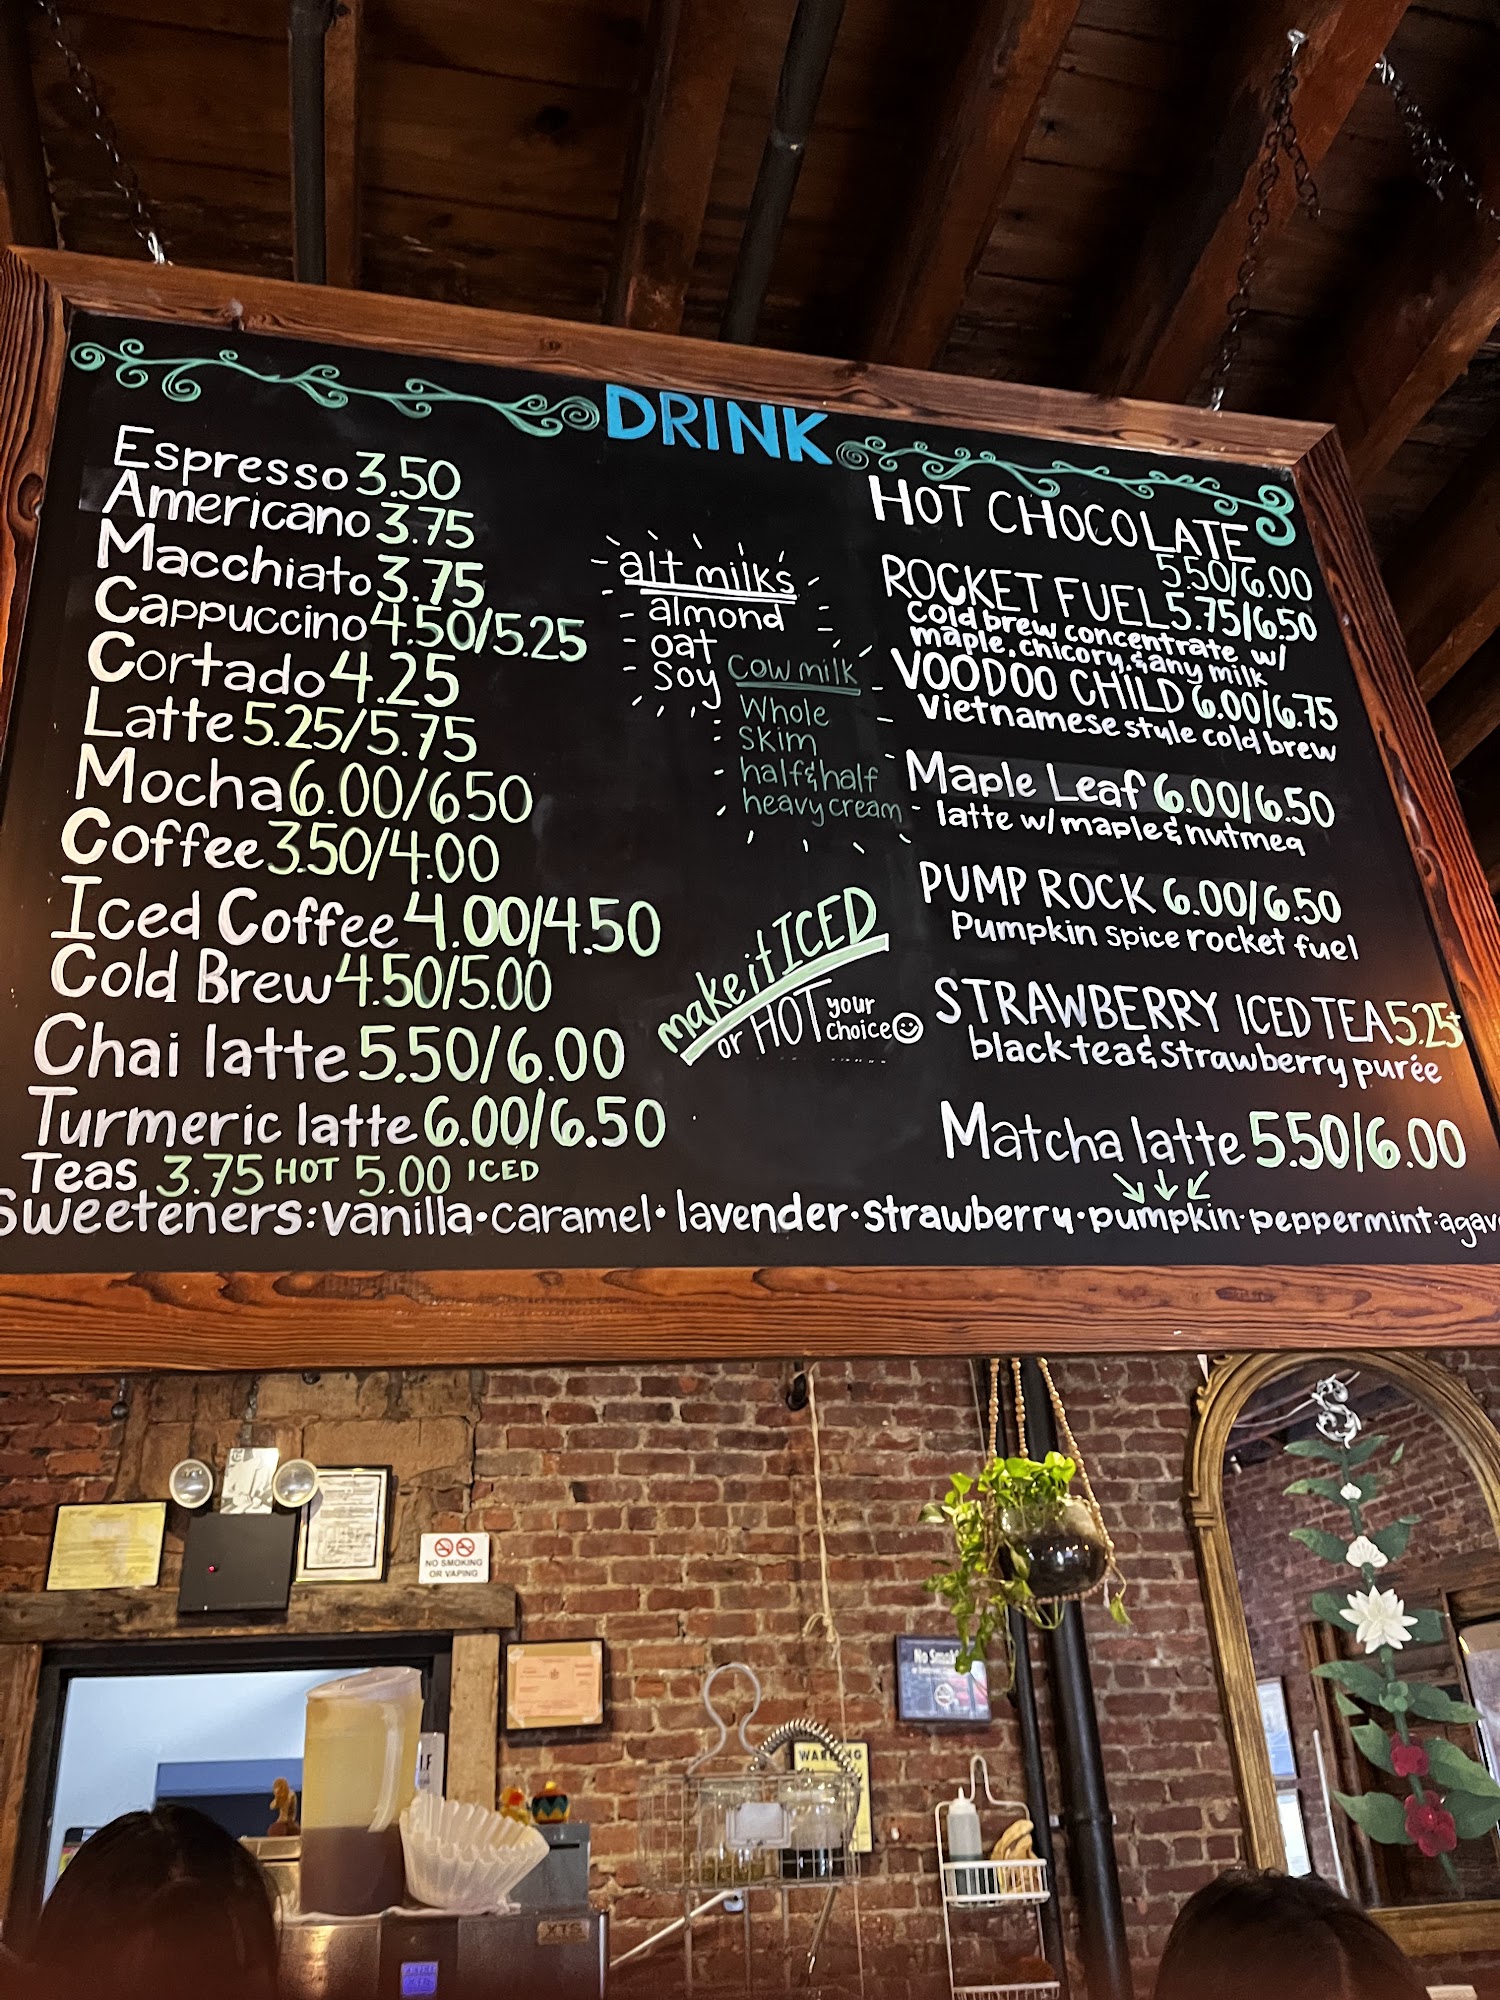 DRINK
Espresso 3.50
Americano 3.75
Macchiato 3.75
Cappuccino 4.50/5.25
Cortado 4.25
Latte 5.25/5.75
Mocha 6.00/650
Coffee 3.50/4.00
Iced Coffee 4.00/4.50
Cold Brew 4.50/5.00
Chai latte 5.50/6.00
Turmeric latte 6.00/6.50
Teas 3.75 HOT 5.00 ICED
alt milks
- almond
- oat
- soy
Cow milk
Whole
skim
half & half
heavy cream
make it ICED
or HOT your choice
HOT CHOCOLATE
5.50/6.00
ROCKET FUEL 5.75/6.50
cold brew concentrate w/
maple, chicory, & any milk
VOODOO CHILD 6.00/6.75
Vietnamese style cold brew
Maple Leaf 6.00/6.50
latte w/ maple & nutmeg
PUMP ROCK 6.00/6.50
Pumpkin spice rocket fuel
STRAWBERRY ICED TEA 5.25+
black tea & strawberry purée
Matcha latte 5.50/6.00
Sweeteners: vanilla · caramel · lavender · strawberry · pumpkin · peppermint · agav
NO SMOKING
OR VAPING
No Smok
WARNING
XTS